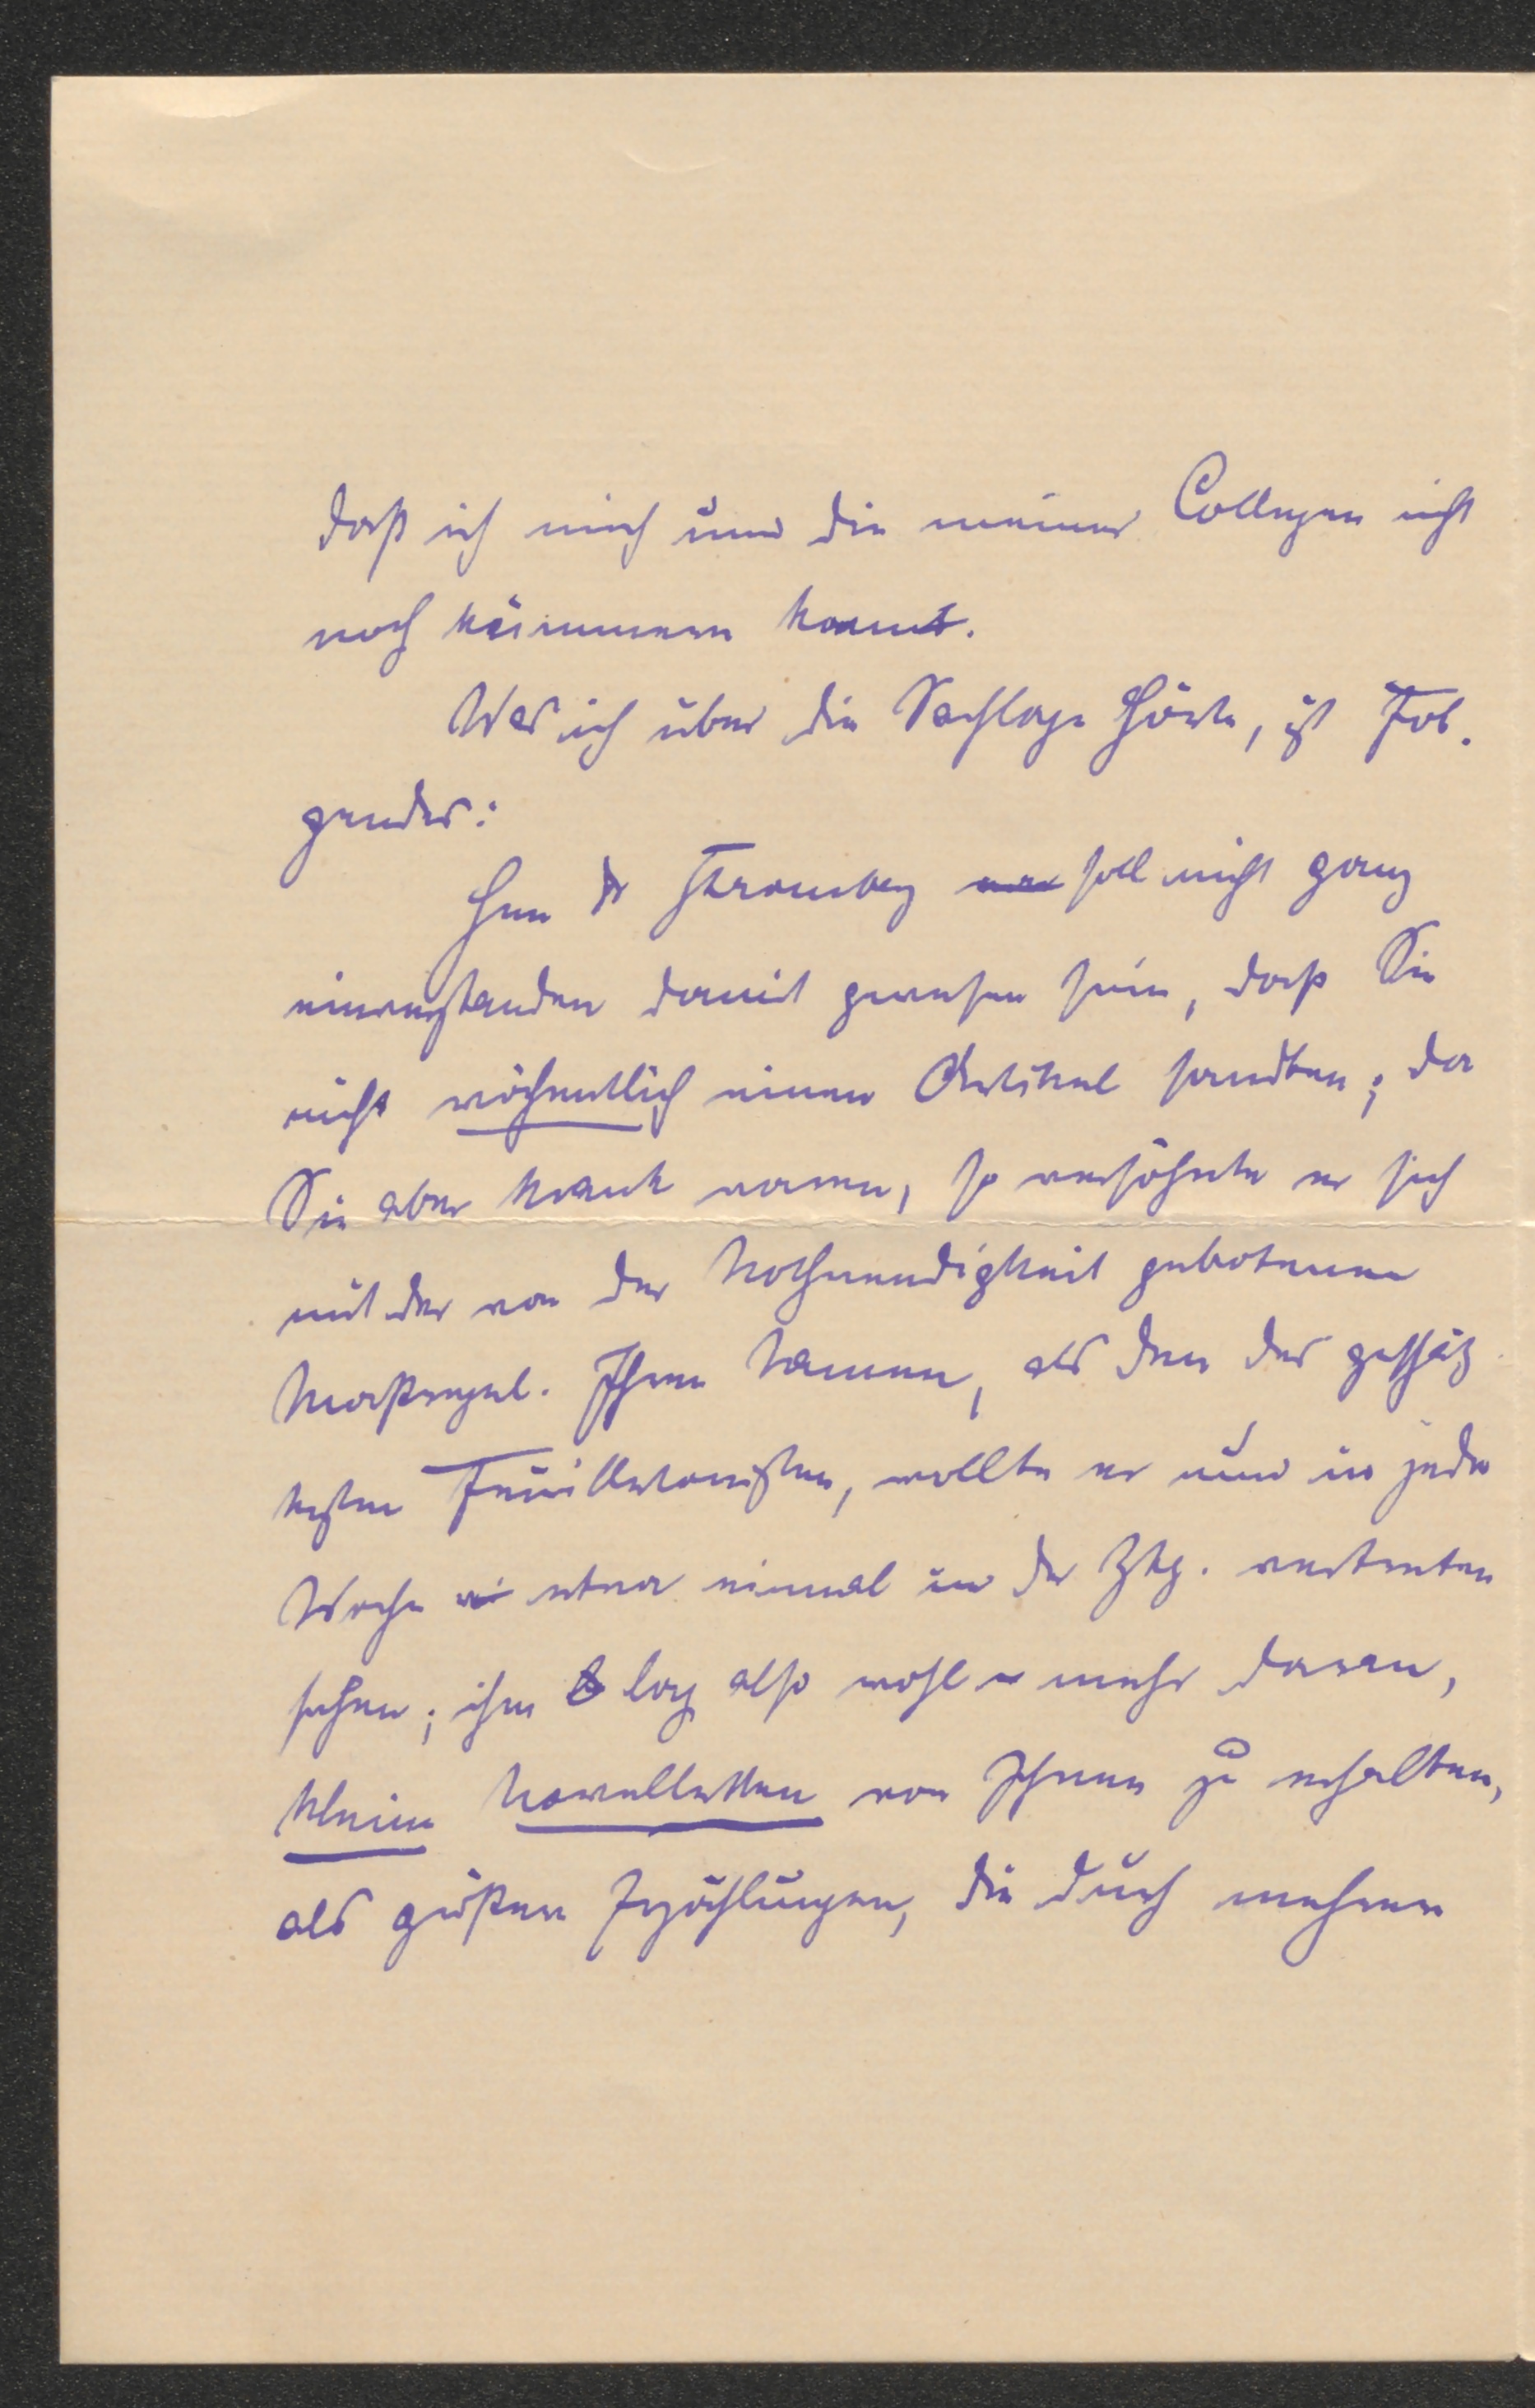 daß ich mich um die meiner Collegen nicht
noch kümmern konnte.
Was ich über die Sachlage hörte, ist Fol-
gendes:
Herr Dr Stromberg war soll nicht ganz
einverstanden damit gewesen sein, daß Sie
nicht wöchentlich einen Artikel sandten; da
Sie aber krank waren, so versöhnte er sich
mit der von der Nothwendigkeit gebotenen
Maßregel. Ihren Namen, als den des geschätz
testen Feuilletonisten, wollte er nun in jeder
Woche etwa einmal in der Ztg. vertreten
sehen; ihm lag also wohl mehr daran,
kleine Novelletten von Ihnen zu erhalten,
als größere Erzählungen, die durch mehrere